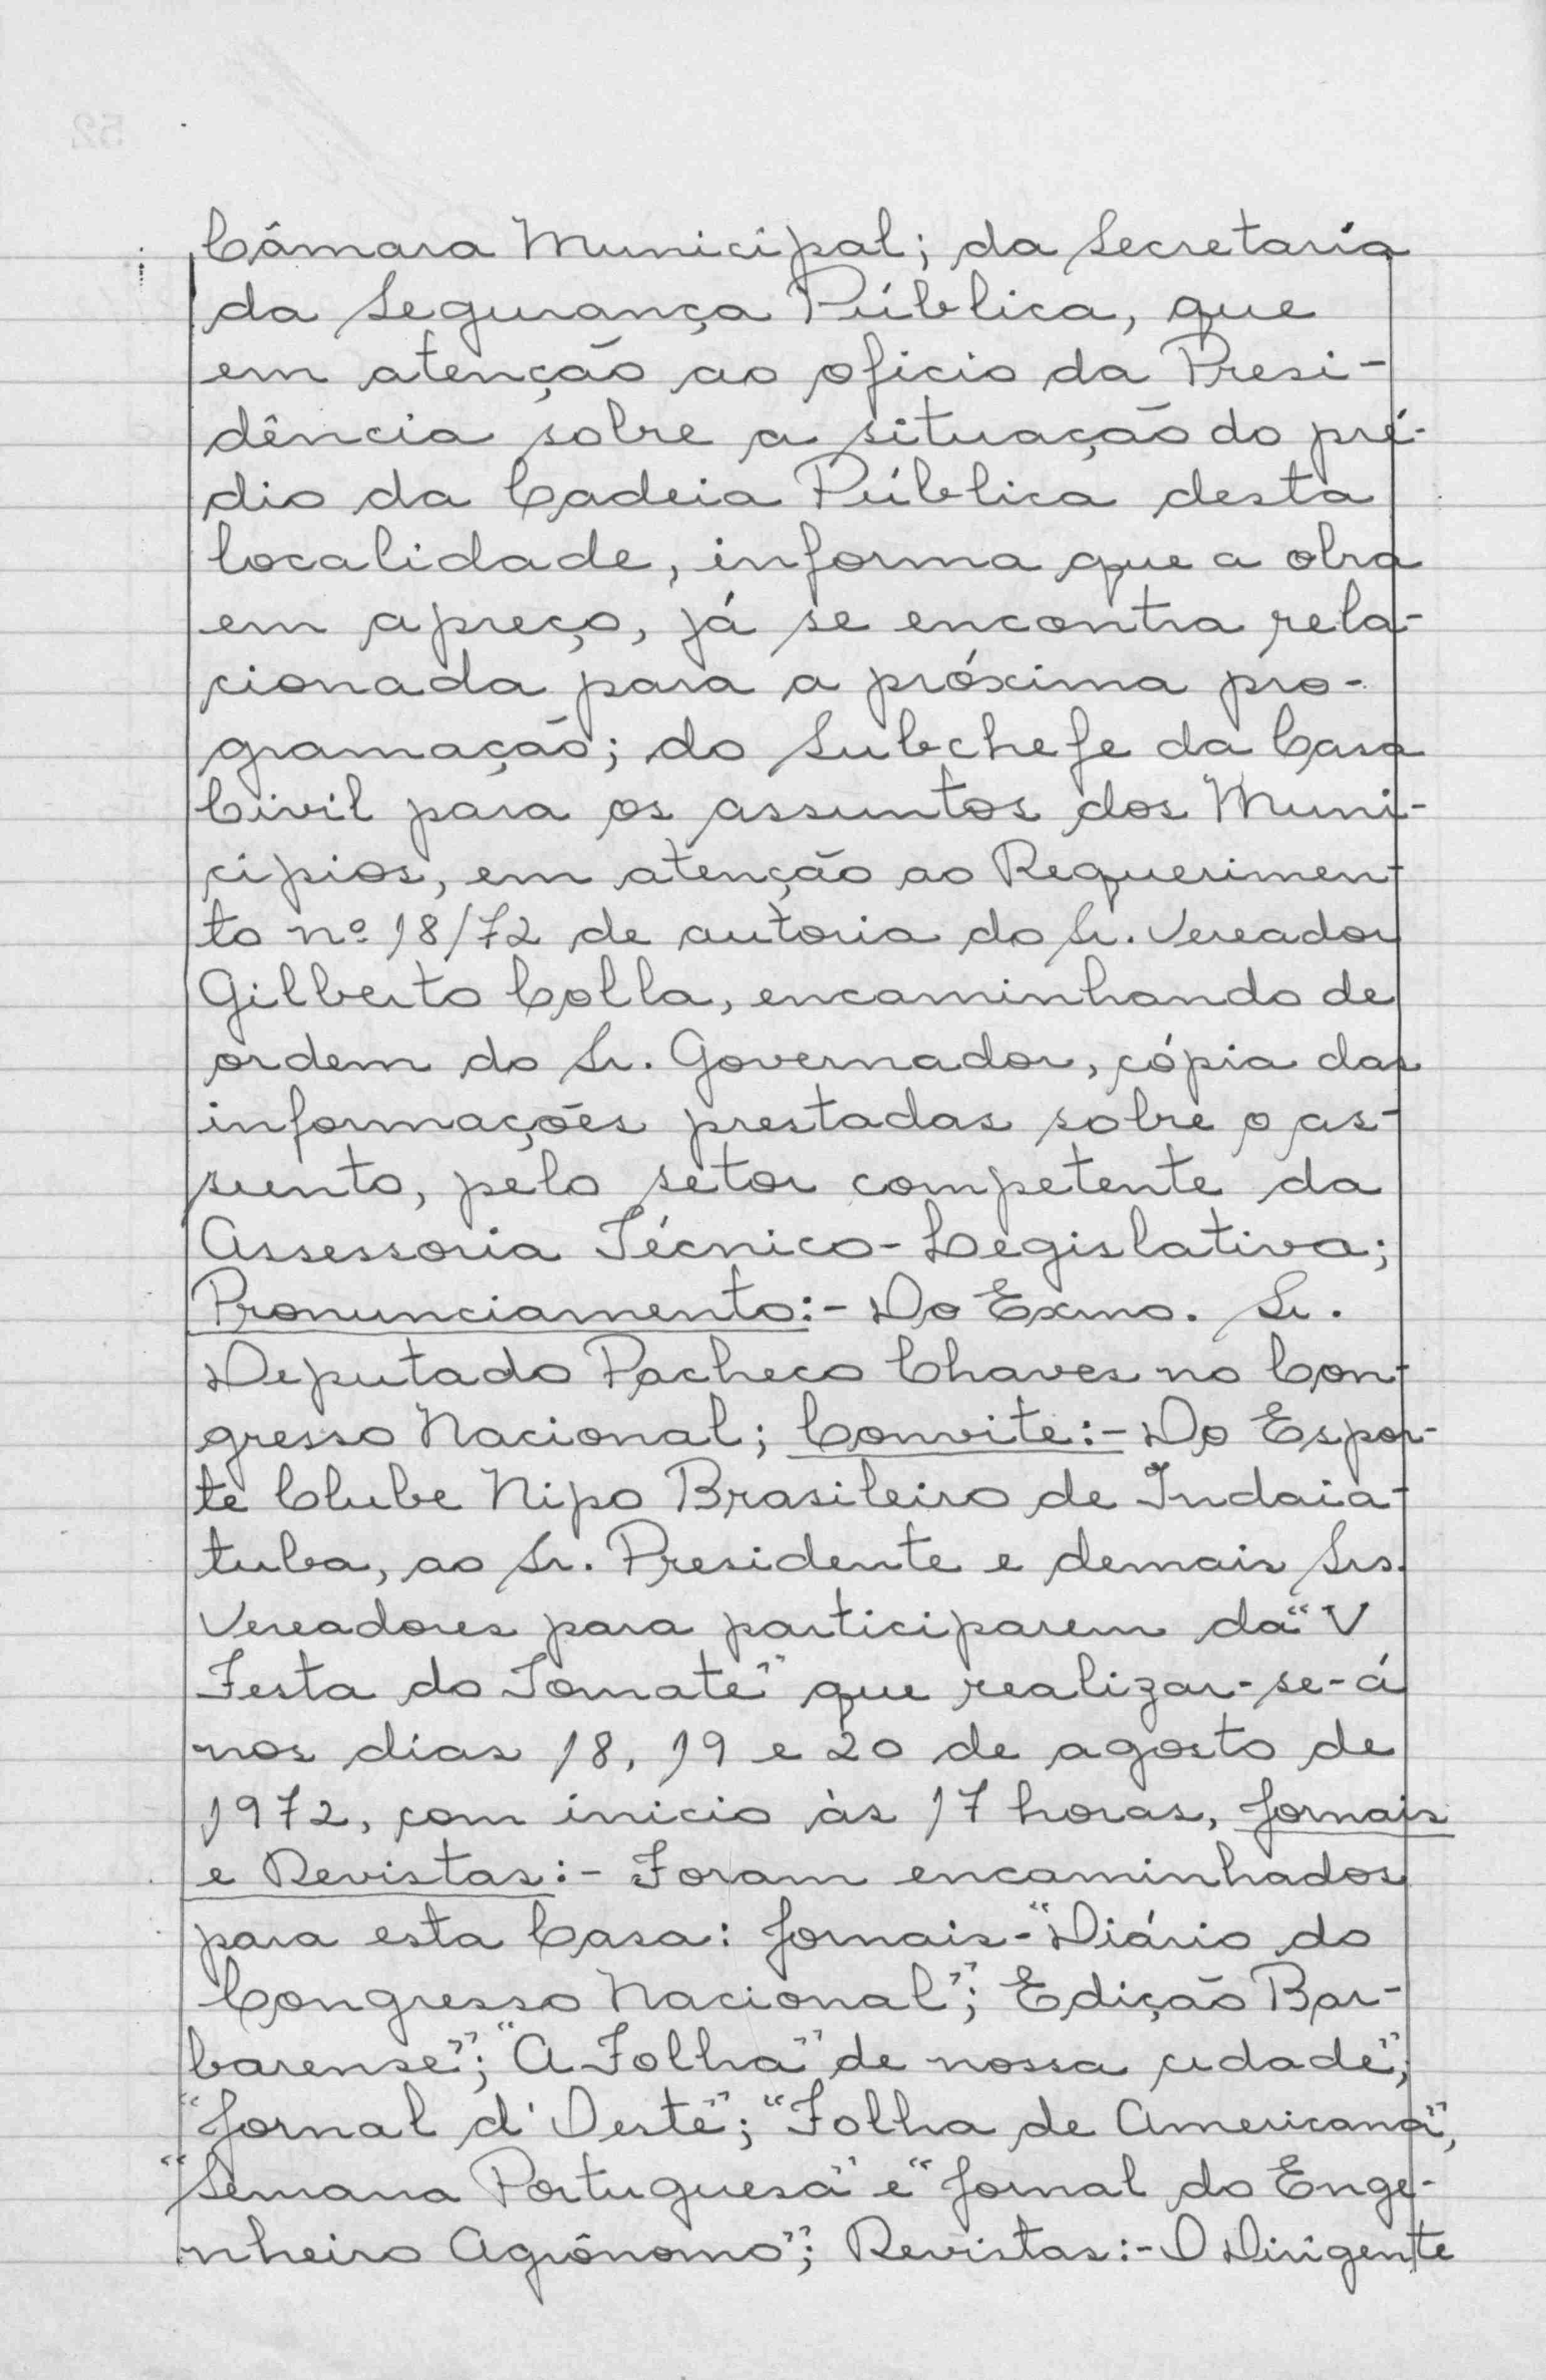 Câmara Municipal; da Secretaria
da Segurança Pública, que
em atenção ao oficio da Presi-
dência sobre a situação do pré-
dio da Cadeia Pública desta
localidade, informa que a obra
em apreço, já se encontra rela-
cionada para a próxima pro-
gramação; do Subchefe da Casa
Civil para os assuntos dos Muni-
cipios, em atenção ao Requerimen-
to nº 18/72 de autoria do Sr. Vereador
Gilberto Colla, encaminhando de
ordem do Sr. Governador, cópia das
informações prestadas sobre o as-
sunto, pelo setor competente da
Assessoria Técnico-Legislativa;
Pronunciamento:- Do Exmo. Sr.
Deputado Pacheco Chaves no Con-
gresso Nacional; Convite:- Do Espor-
te Clube Nipo Brasileiro de Indaia-
tuba, ao Sr. Presidente e demais Srs.
Vereadores para participarem da "V
Festa do Tomate" que realizar-se-á
nos dias 18, 19 e 20 de agosto de
1972, com inicio às 17 horas, Jornais
e Revistas:- Foram encaminhados
para esta Casa: Jornais-"Diário do
Congresso Nacional"; Edição Bar-
barense"; "A Folha" de nossa cidade";
"Jornal d'Oeste"; "Folha de Americana",
"Semana Portuguesa" e "Jornal do Enge-
nheiro Agrônomo"; Revistas:- O Dirigente